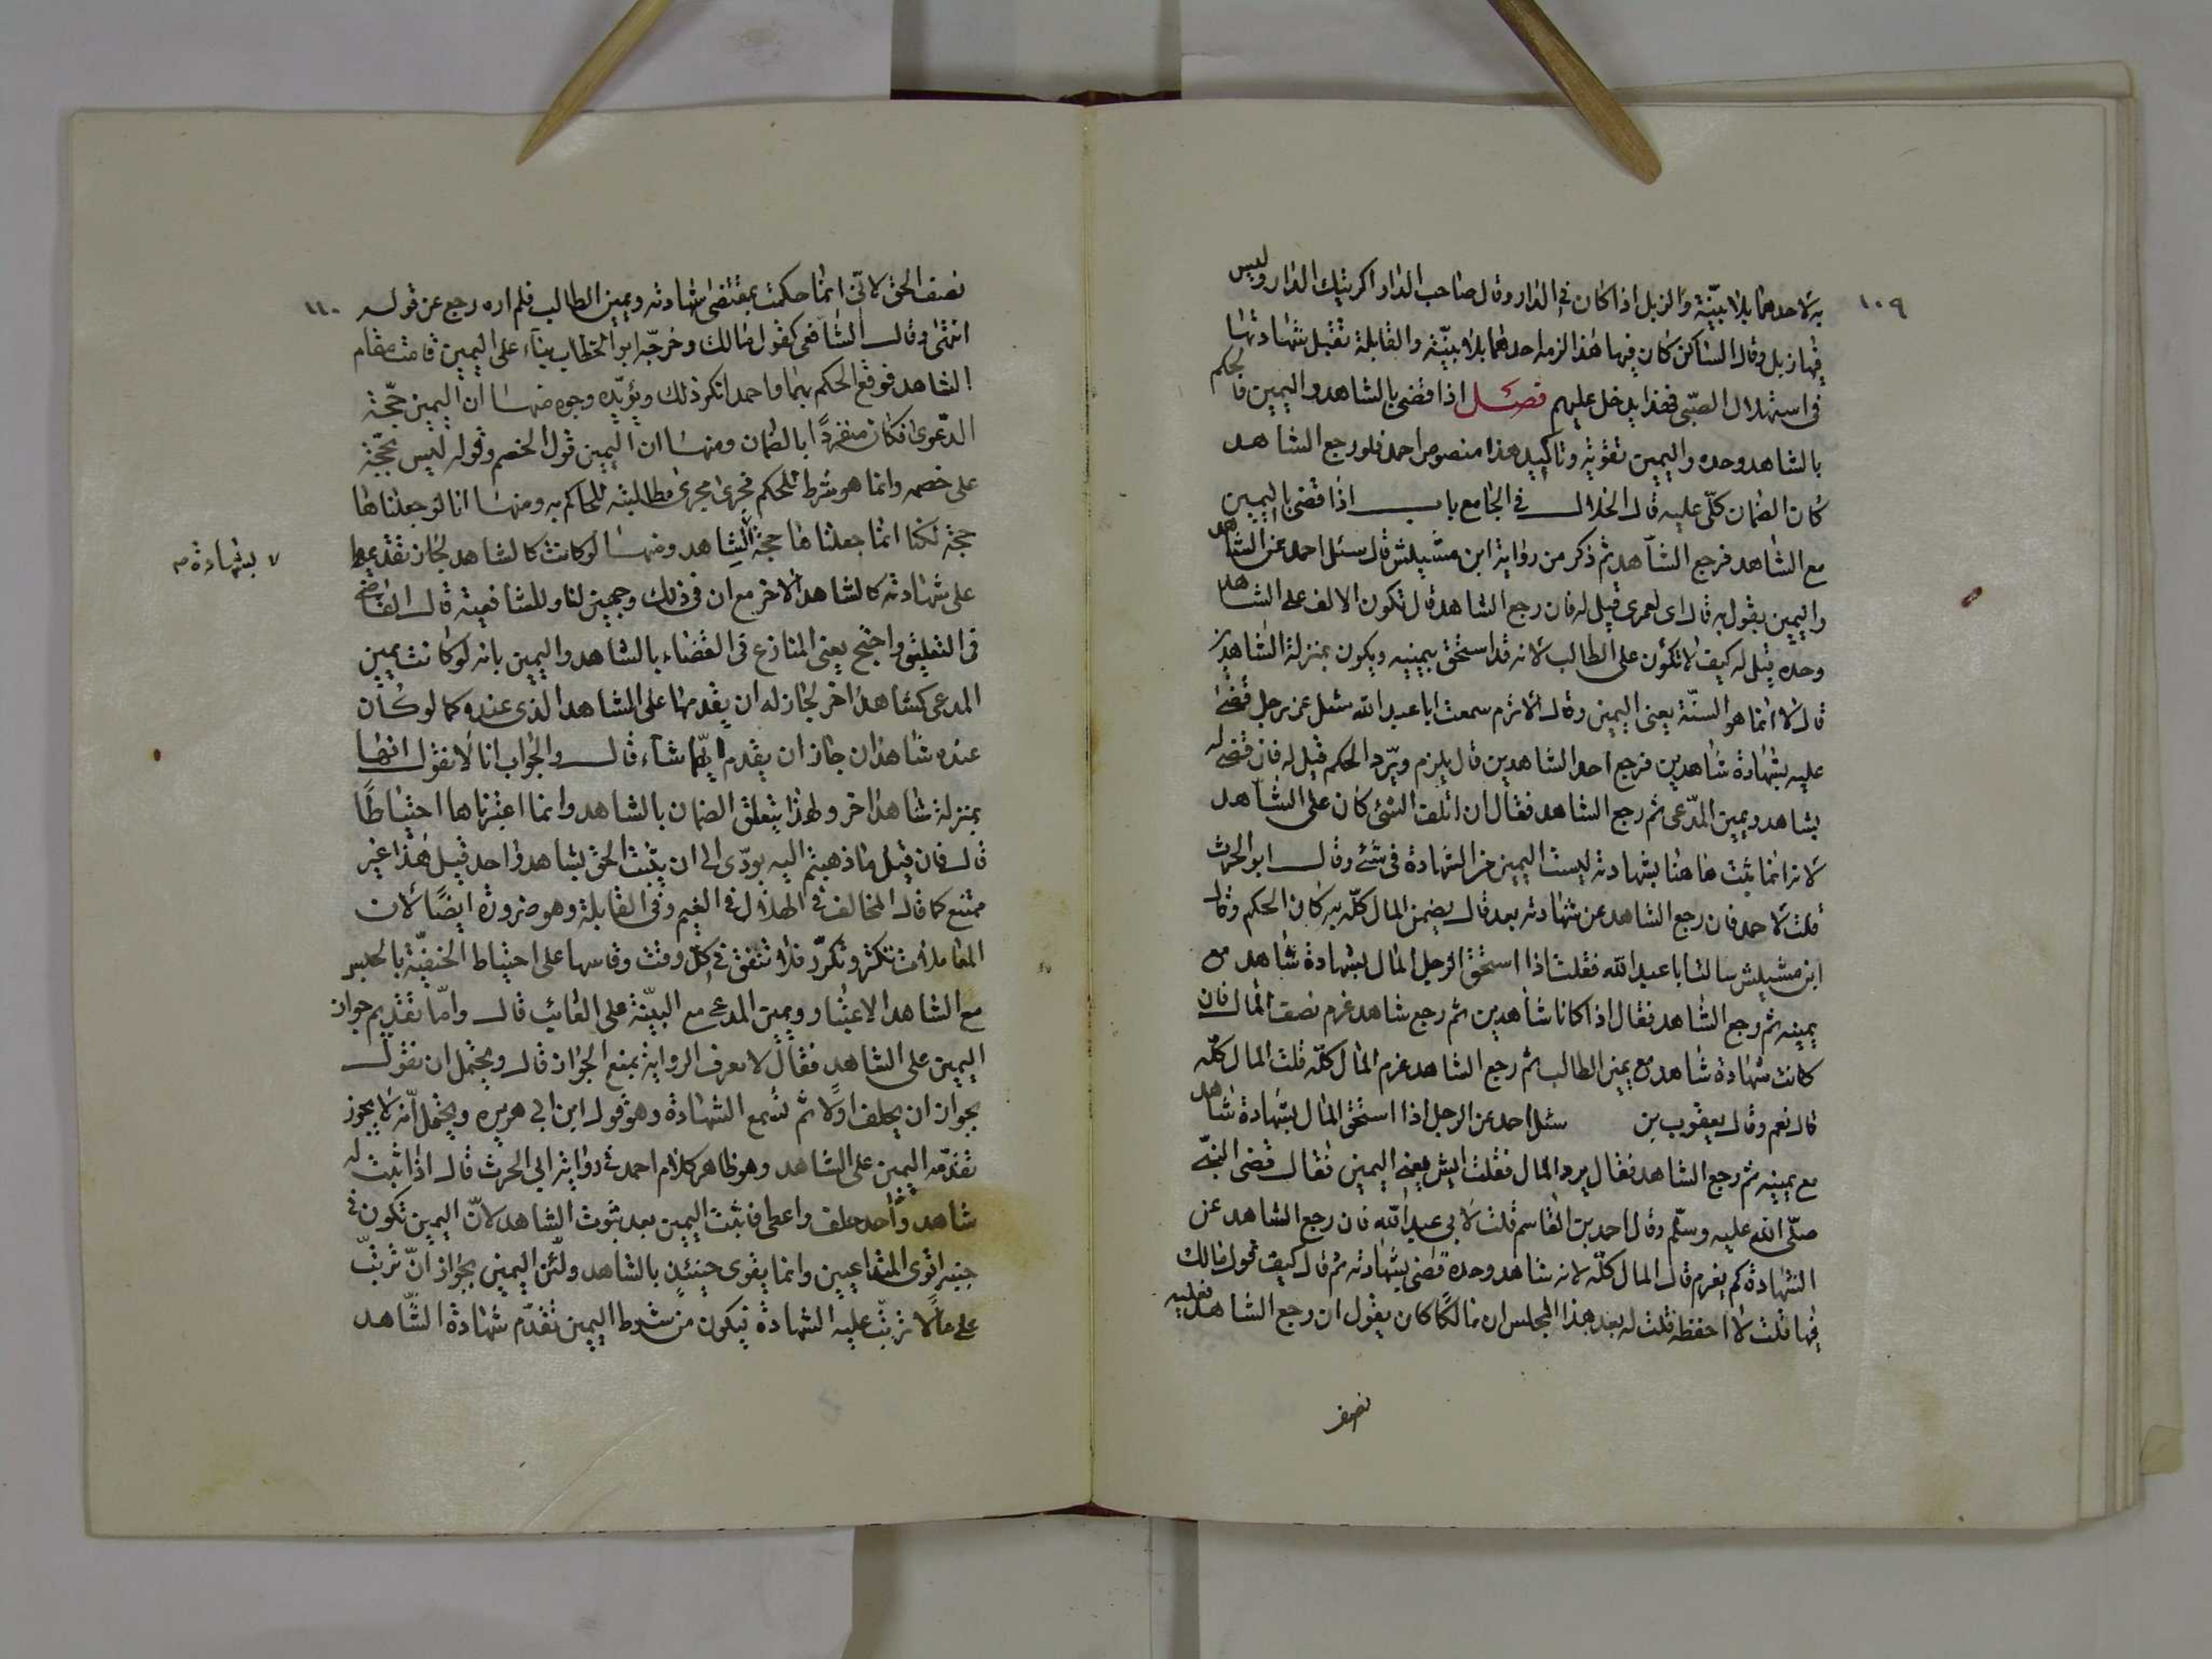 ١٠٩
به لاحدهما بلا بيّنة والزبل اذا كان في الدار وقال صاحب الدار اكريتك الدار وليس
فيها زبل وقال الساكن كان فيها هذا الزم احدهما بلا بيّنة والقابلة تقبل شهادتها
في استهلال الصبّي فهذا يدخل عليهم فصل اذا قضى بالشاهد واليمين فالحكم
بالشاهد وحده واليمين تقوية وتاكيد هذا منصوص احمد فلو رجع الشاهد
كان الضمان كلّي عليه قال الخلال في الجامع باب اذا قضى باليمين
مع الشاهد فرجع الشاهد ثم ذكر من رواية ابن مشيلش قال سئل احمد عن الشاهد
واليمين يقول به قال اى لعمرى قيل له فان رجع الشاهد قال تكون الالف على الشاهد
وحده قيل له كيف لا تكون على الطالب لانه قد استحق بيمينه ويكون بمنزلة الشاهدين
قال لا انما هو السنّة يعنى اليمين وقال الاثرم سمعت ابا عبد الله سئل عن رجل قضى
عليه بشهادة شاهدين فرجع احد الشاهدين قال يلزم ويرد الحكم قيل له فان قضى له
بشاهد ويمين المدّعى ثم رجع الشاهد فقال ان اتلف الشئ كان على الشاهد
لانه انما ثبت هاهنا بشهادته ليست اليمين من الشهادة في شئ وقال ابو الحرث
قلت لاحمد فان رجع الشاهد عن شهادته بعد قال يضمن المال كلّه به كان الحكم وقال
ابن مشيلش سالت ابا عبد الله فقلت اذا استحق الرجل المال بشهادة شاهد مع
يمينه ثم رجع الشاهد فقال اذا كانا شاهدين ثم رجع شاهد غرم نصف المال فان
كانت شهادة شاهد مع يمين الطالب ثم رجع الشاهد غرم المال كلّه قلت المال كلّه
قال نعم وقال يعقوب بن سئل احمد عن الرجل اذا استحق المال بشهادة شاهد
مع يمينه ثم رجع الشاهد فقال يرد المال فقلت ايش معنى اليمين فقال قضى النبي
صلّى الله عليه وسلّم وقال احمد بن القاسم قلت لابي عبد الله فان رجع الشاهد عن
الشهادة كم يغرم قال المال كلّه لانه شاهد وحده قضى بشهادته ثم قال كيف قول مالك
فيها قلت لا احفظه قلت له بعد هذا المجلس ان مالكًا كان يقول ان رجع الشاهد فعليه
نصف
١١٠
نصف الحق لانّي انما حكمت بمقتضى شهادته ويمين الطالب فلم اره رجع عن قوله
انتهى وقال الشافعى كقول مالك وخرّجه ابو الخطاب بناء على اليمين قامت مقام
الشاهد فوقع الحكم بهما واحمد انكر ذلك ويؤيّده وجوه منها ان اليمين حجّة
الدّعوى فكان منفردًا بالضمان ومنها ان اليمين قول الخصم وقوله ليس بحجّة
على خصمه وانما هو شرط للحكم فجرى مجرى مطالبته للحاكم به ومنها انا لو جعلناها
حجة لكنا انما جعلناها حجة الشاهد ومنها لو كانت كالشاهد لجاز تقديمها
بشهادة
على شهادته كالشاهد الاخر مع ان في ذلك وجهين لنا وللشافعية قال القاضي
في التعليق واحتج يعنى المنازع في القضاء بالشاهد واليمين بانه لو كانت يمين
المدعى كشاهد اخر لجاز له ان يقدمها على الشاهد الذى عنده كما لو كان
عنده شاهدان جاز ان يقدم ايّهما شاء قال والجواب انا لا نقول انها
بمنزلة شاهد اخر ولهذا يتعلق الضمان بالشاهد وانما اعتبرناها احتياطًا
قال فان قيل ما ذهبتم اليه يودّى الى ان يثبت الحق بشاهد واحد قيل هذا غير
ممتنع كما قال المخالف في الهلال في الغيم وفي القابلة وهو ضرورة ايضًا لان
المعاملات تكثر وتكرّر فلا تتفق في كلّ وقت وقاسها على احتياط الحنفيّة بالحبس
مع الشاهد الاعتبار ويمين المدعى مع البيّنة على الغائب قال وامّا تقديم جواز
اليمين على الشاهد فقال لا نعرف الرواية بمنع الجواز قال ويحتمل ان نقول
بجواز ان يحلف اولًا ثم تسمع الشهادة وهو قول ابن ابي هريره ويحتمل انّه لا يجوز
تقدمه اليمين على الشاهد وهو ظاهر كلام احمد في رواية ابي الحرث قال اذا ثبت له
شاهد واحد حلف واعطى فاثبت اليمين بعد ثبوت الشاهد لانّ اليمين تكون في
جنبه اقوى المتداعيين وانما يقوى حينئذٍ بالشاهد ولئن اليمين بجواز انّ ترتبّ
على مالا ترتبّ عليه الشهادة فيكون من شرط اليمين تقدّم شهادة الشّاهد